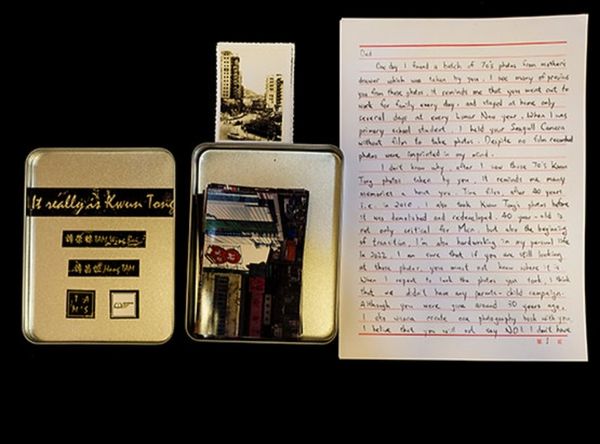 It really is Kwun Tong
TAM Wing
Hang TAM
TA
M'S
Dad
One day I found a batch of 70's photos from mother's
drawer which was taken by you. I see many of previous
you from those photos. It reminds me that you went out to
work for family every day, and stayed at home only
several days at every Lunar New year. When I was
primary school student, I held your Seagull Camera
without film to take photos. Despite no film recorded
photos were imprinted in my mind.
I don't know why, after I saw those 70's Kwun
Tong photos taken by you. It reminds me many
memories + have you. Time flies, after 40 years
i.e. in 2010, I also took Kwun Tong's photos before
it was demolished and redeveloped. 40 year-old is
not only critical for Men, but also the beginning
of transition. I'm also hardworking in my personal life
In 2022, I am sure that if you are still looking
at those photos, you must not know where it is
When I regret to look the photos you took, I think
that we didn't have any parents-child campaign.
Although you were gone around 30 years ago.
I also wanna create one photography book with you.
I believe that you will not say NO! I don't have